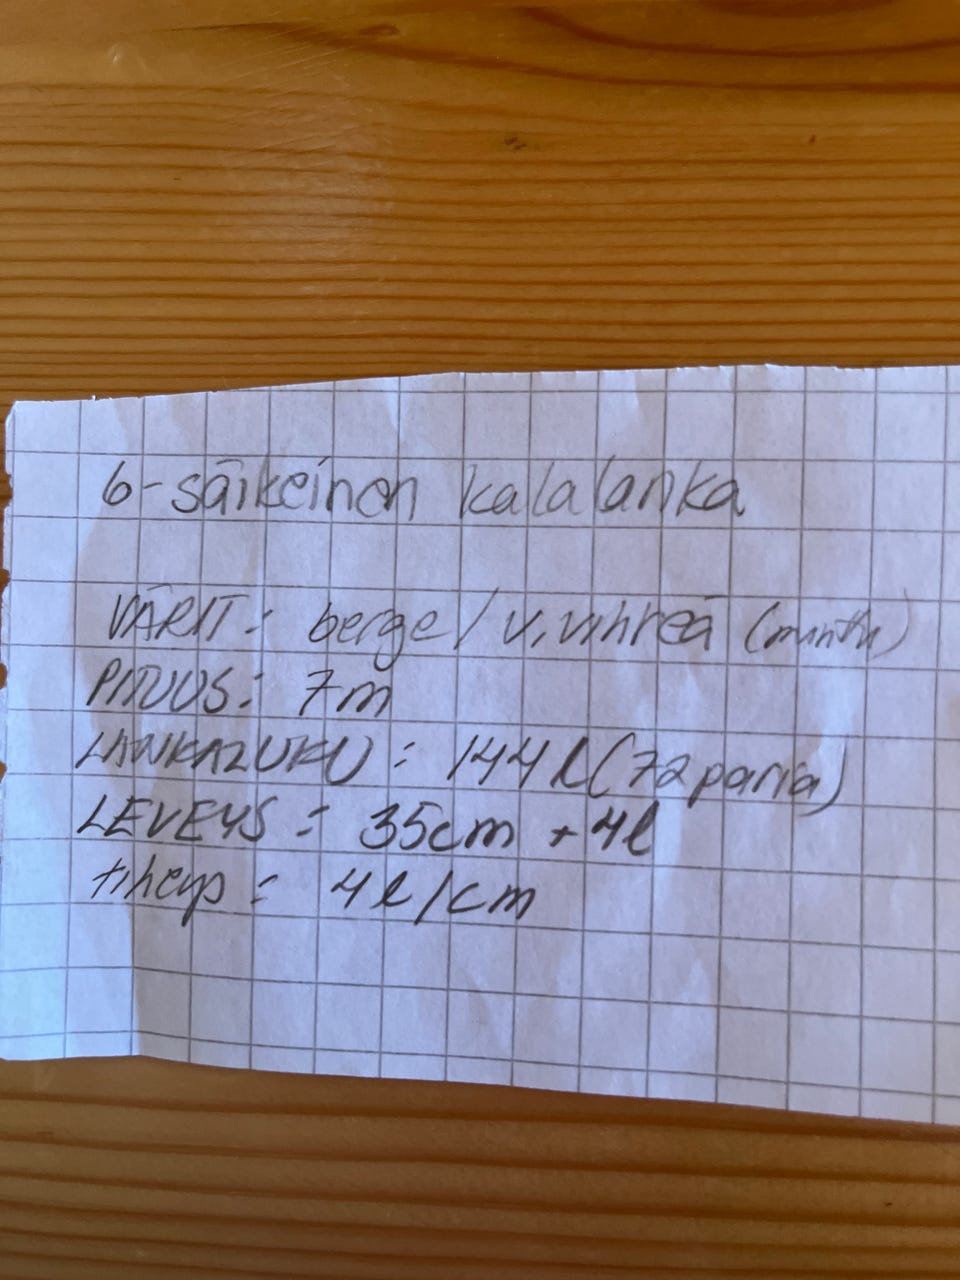 6-säikeinen kalalanka
VÄRIT: beige / v.vihreä (minttu)
PITUUS: 7m
LANKALUKU: 144 l (72 paria)
LEVEYS: 35cm + 4l
tiheys: 4 l/cm